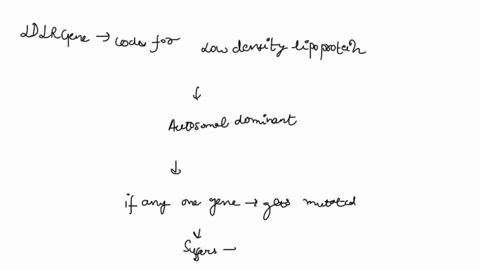 LDLR Gene → codes for Low density lipoprotein
↓
Autosomal dominant
↓
if any one gene → gets mutated
↓
Suffers –